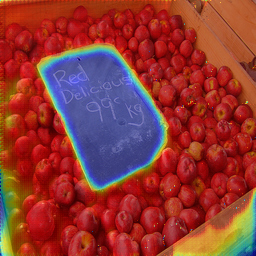 Red
Delicious
99¢ kg